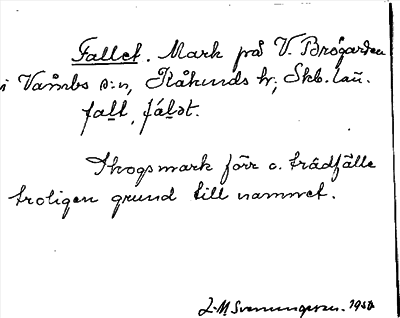 Fallet. Mark på V. Brogården
i Våmbs s:n, Kåkinds hr; Skb. län.
falt, fálət.
Skogsmark förr o. trädfälle
troligen grund till namnet.
L-M. Svenungsson. 1950